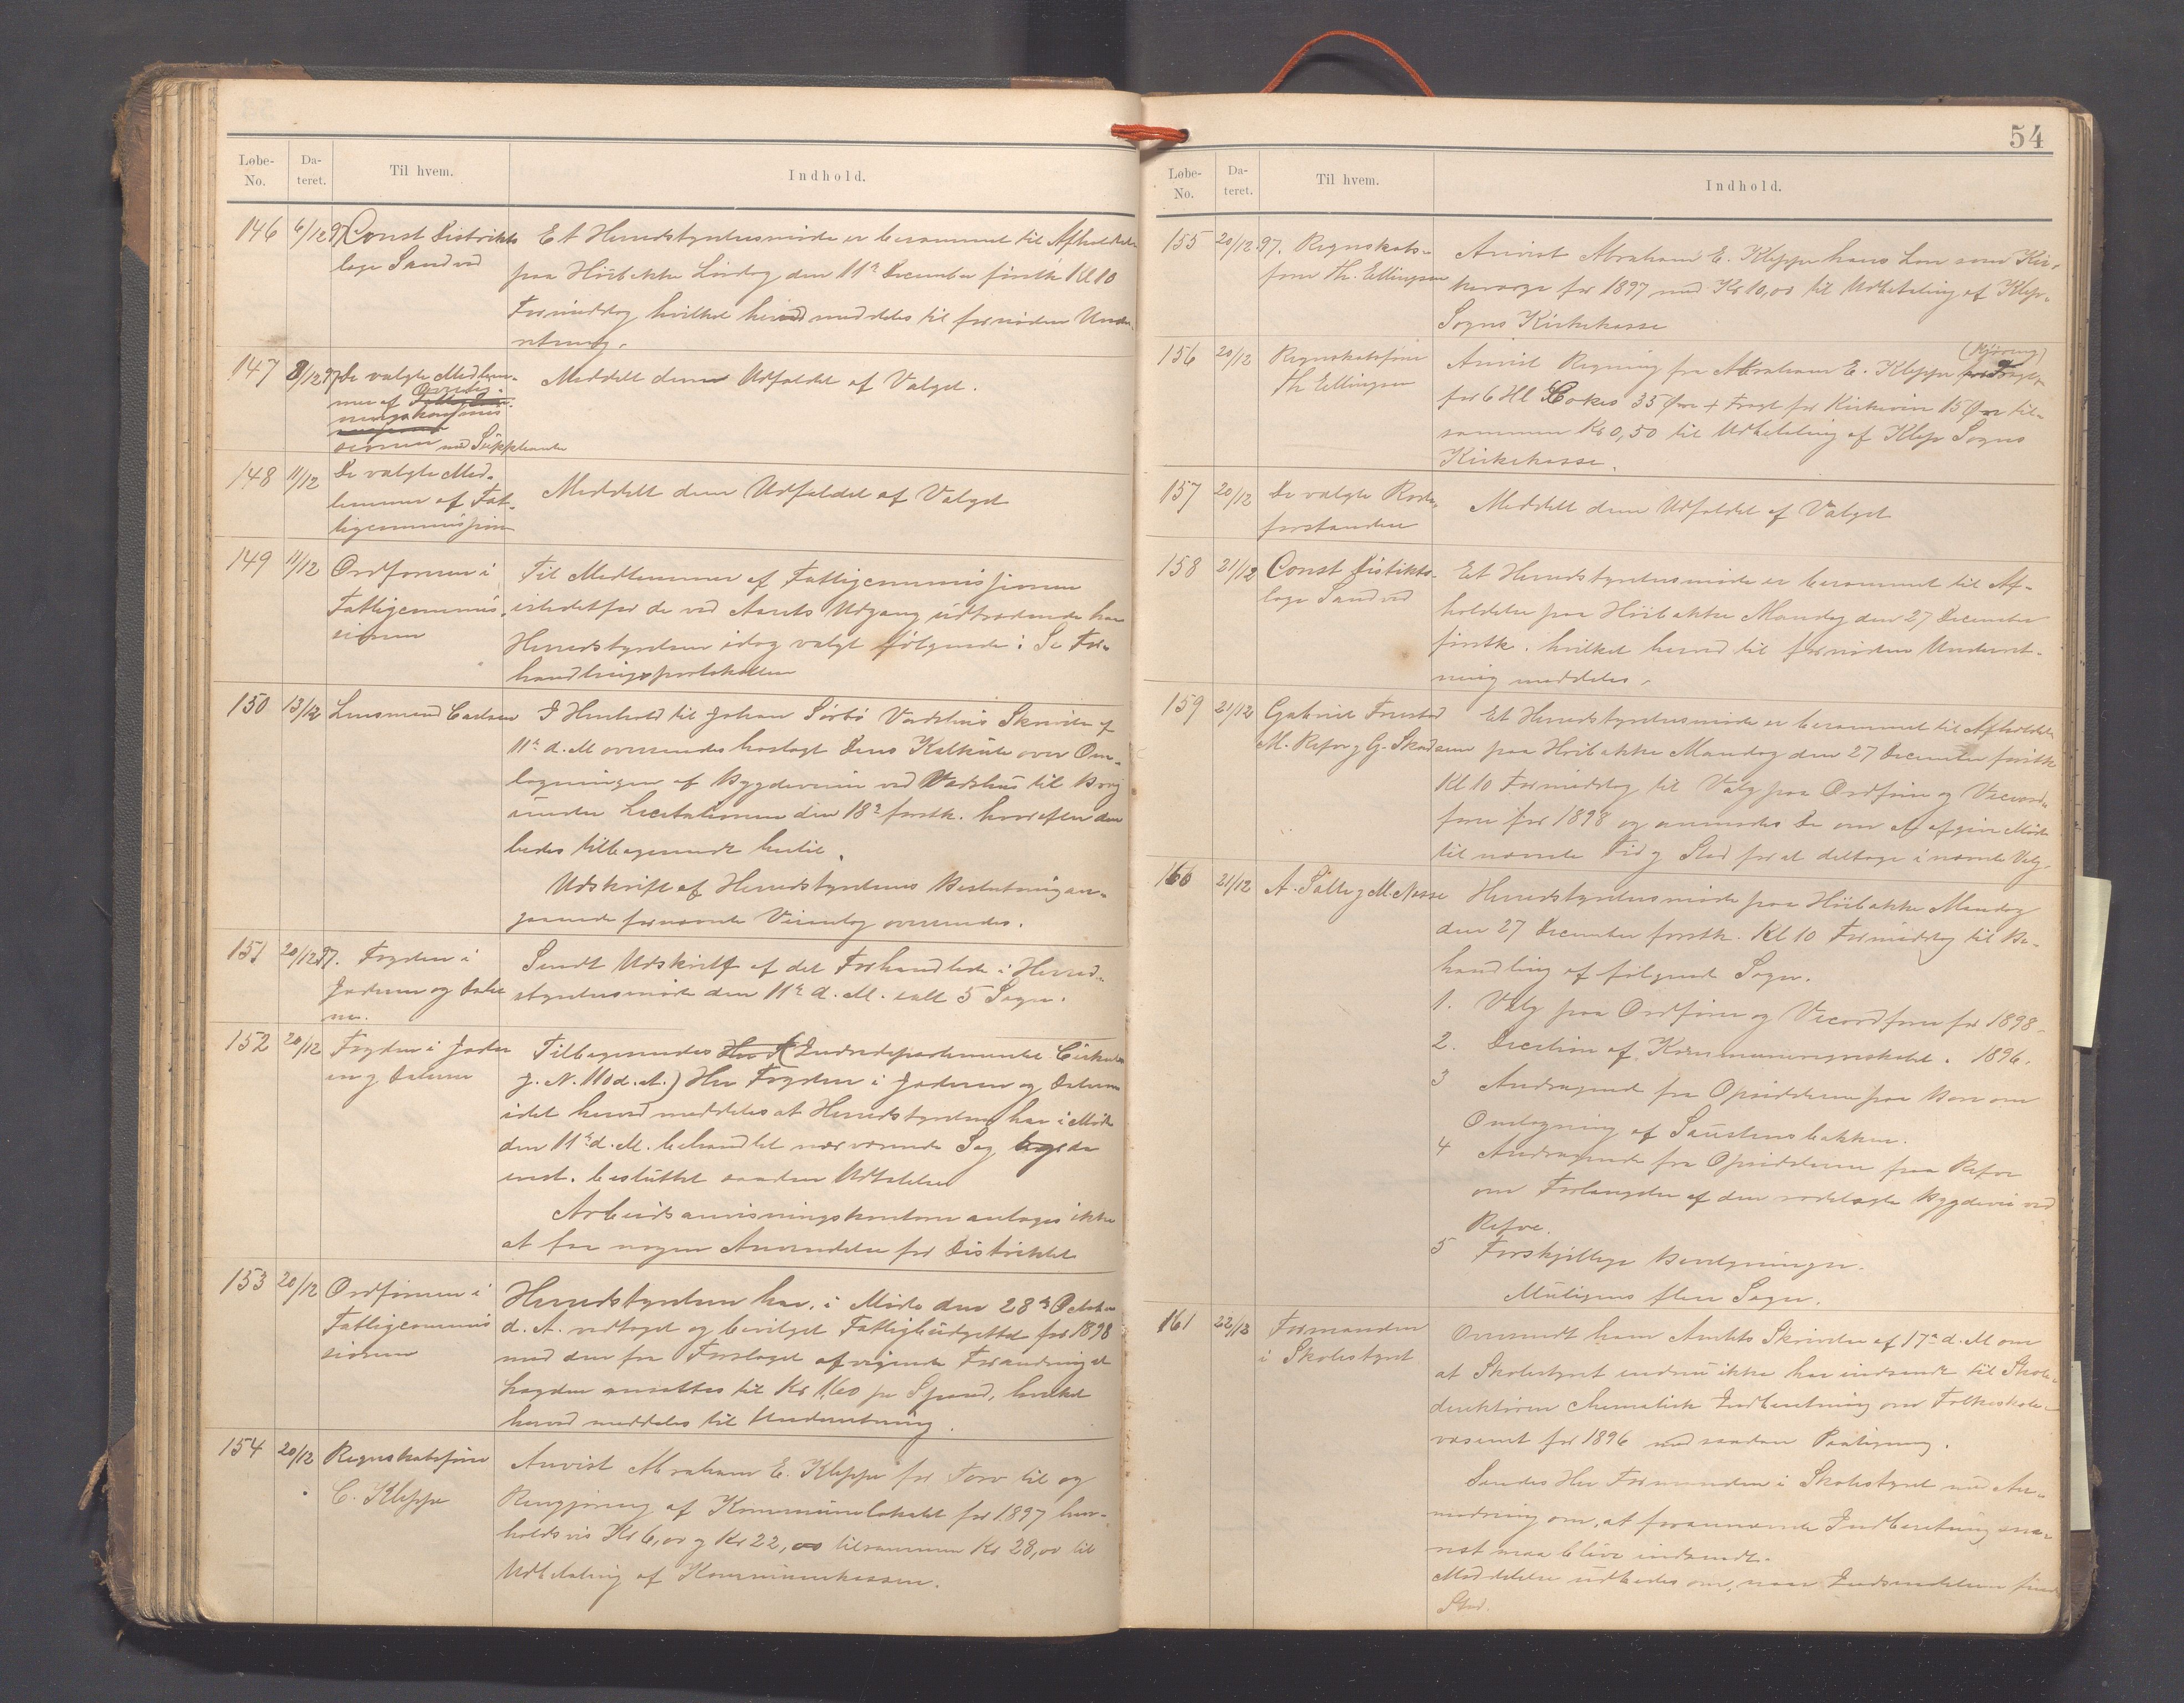 Løbe-
No.
Da-
teret.
Til hvem.
Indhold.
146
6/12 97
Const Distrikts
læge Sandved
Et Herredstyrelsesmøde er berammet til Afholdelse
paa Höibakke Lördag den 11te December förstk Kl 10
Formiddag hvilket herved meddeles til fornöden Under
retning.
147
8/12 97
De valgte Medlem-
mer af
sionen med Süppleanter
Meddelt dem Udfaldet af Valget.
148
11/12
De valgte Med-
lemmer af Fat-
tigcommissjon
Meddelt dem Udfaldet af Valget
149
11/12
Ordföreren i
Fattigcommis
sionen
Til Medlemmer af Fattigcommissjionen
istedetfor de ved Aarets Udgang üdtrædende har
Herredstyrelsen idag valgt følgende: Se For-
handlingsprotokollen
150
13/12
Lensmand Carlsen
I Henhold til Johan Sörbö Vadshüs Skrivelse af
11te d. M oversendes hoslagt Deres Kalküle over Om-
lægningen af Bygdeveien ved Vadshüs til Brug
ünder Licitationen den 18de förstk. hvorefter den
bedes tilbagesendt hertil.
Udskrift af Herredstyrelsens Beslutning an-
gaaende fornævnte Veianlæg oversendes.
151
20/12 97.
Fogden i
Jæderen og Dale
ne.
Sendt Udskrift af det Forhandlede i Herred-
styrelsesmöde den 11te d. M. ialt 5 Sager.
152
20/12
Fogden i Jæder
en og Dalerne
Tilbagesendes (Indredepartementets Cirkulær
J. N. 110 d. A.) Herr Fogden i Jæderen og Dalerne
idet herved meddeles at Herredstyrelsen har i Möde
den 11te d. M. behandlet nærværende Sag
enst. beslüttet saadan Udtalelse
Arbeidsanvisningskontorer antages ikke
at faa nogen Anvendelse for Distriktet
153
20/12
Ordföreren i
Fattigcommis
sionen
Herredstyrelsen har i Möde den 28de October
d. A. vedtaget og bevilget Fattigbüdgettet for 1898
med den fra Forslaget afvigende Forandring at
Lægden ansættes til Kr 1,60 pr Spand, hvilket
herved meddeles til Underretning.
154
20/12
Regnskabsförer
C. Kleppe
Anvist Abraham E. Kleppe for Torv til og
Rengjöring af Kommünelokalet for 1897 hen-
holdsvis Kr 6,00 og Kr 22,00 tilsammen Kr 28,00 til
Udbetaling af Kommünekassen.
54
Løbe-
No.
Da-
teret.
Til hvem.
Indhold.
155
20/12 97.
Regnskabs-
förer Th. Ellingsen
Anvist Abraham E. Kleppe hans Lön som Kir-
keværge for 1897 med Kr 10,00 til Udbetaling af Klep-
Sogns Kirkekasse
156
20/12
Regnskabsförer
Th Ellingsen
(Kjöring)
Anvist Regning fra Abraham E. Kleppe
for 6 Hl Cokes 35 Öre + Fragt for Kirkevin 15 Öre til-
sammen Kr 0,50 til Udbetaling af Klep Sogns
Kirkekasse.
157
20/12
De valgte Rode-
forstandere
Meddelt dem Udfaldet af Valget
158
21/12
Const Distikts-
læge Sandved
Et Herredstyrelsesmöde er berammet til Af-
holdelse paa Höibakke Mandag den 27 December
förstk. hvilket herved til fornöden Underret-
ning meddeles.
159
21/12
Gabriel Fruestad
M. Refve og G. Skadsem
Et Herredstyrelsesmöde er berammet til Afholdelse
paa Höibakke Mandag den 27 December förstk
Kl 10 Formiddag til Valg paa Ordförer og Viceord-
förer for 1898 og anmodes De om at afgive Möde
til nævnte Tid og Sted for at deltage i nævnte Valg.
160
21/12
A. Salte og M. Næsse
Herredstyrelsesmöde paa Höibakke Mandag
den 27 December förstk. Kl 10 Formiddag til Be-
handling af følgende Sager.
1. Valg paa Ordförer og Viceordförer for 1898-
2. Decition af Kommuneregnskabet. 1896.
3 Andragende fra Opsidderne paa Bore om
Omlægning af
4 Andragende fra Opsidderne paa Refve
om Forlængelse af den rodelagte Bygdevei ved
Refve.
5 Forskjellige Bevilgninger.
Müligens flere Sager.
161
22/12
Formanden
i Skolestyret
Oversendt ham Amtets Skrivelse af 17de d. M om
at Skolestyret endnü ikke har indsendt til Skole-
direktören skematisk Indberetning om Folkeskole-
væsenet for 1896 med saadan Paategning.
Sendes Herr Formanden i Skolestyret med An-
modning om, at forannævnte Indberetning sna-
rest maa blive indsendt.
Meddelelse üdbedes om, naar Indsendelsen finder
Sted.